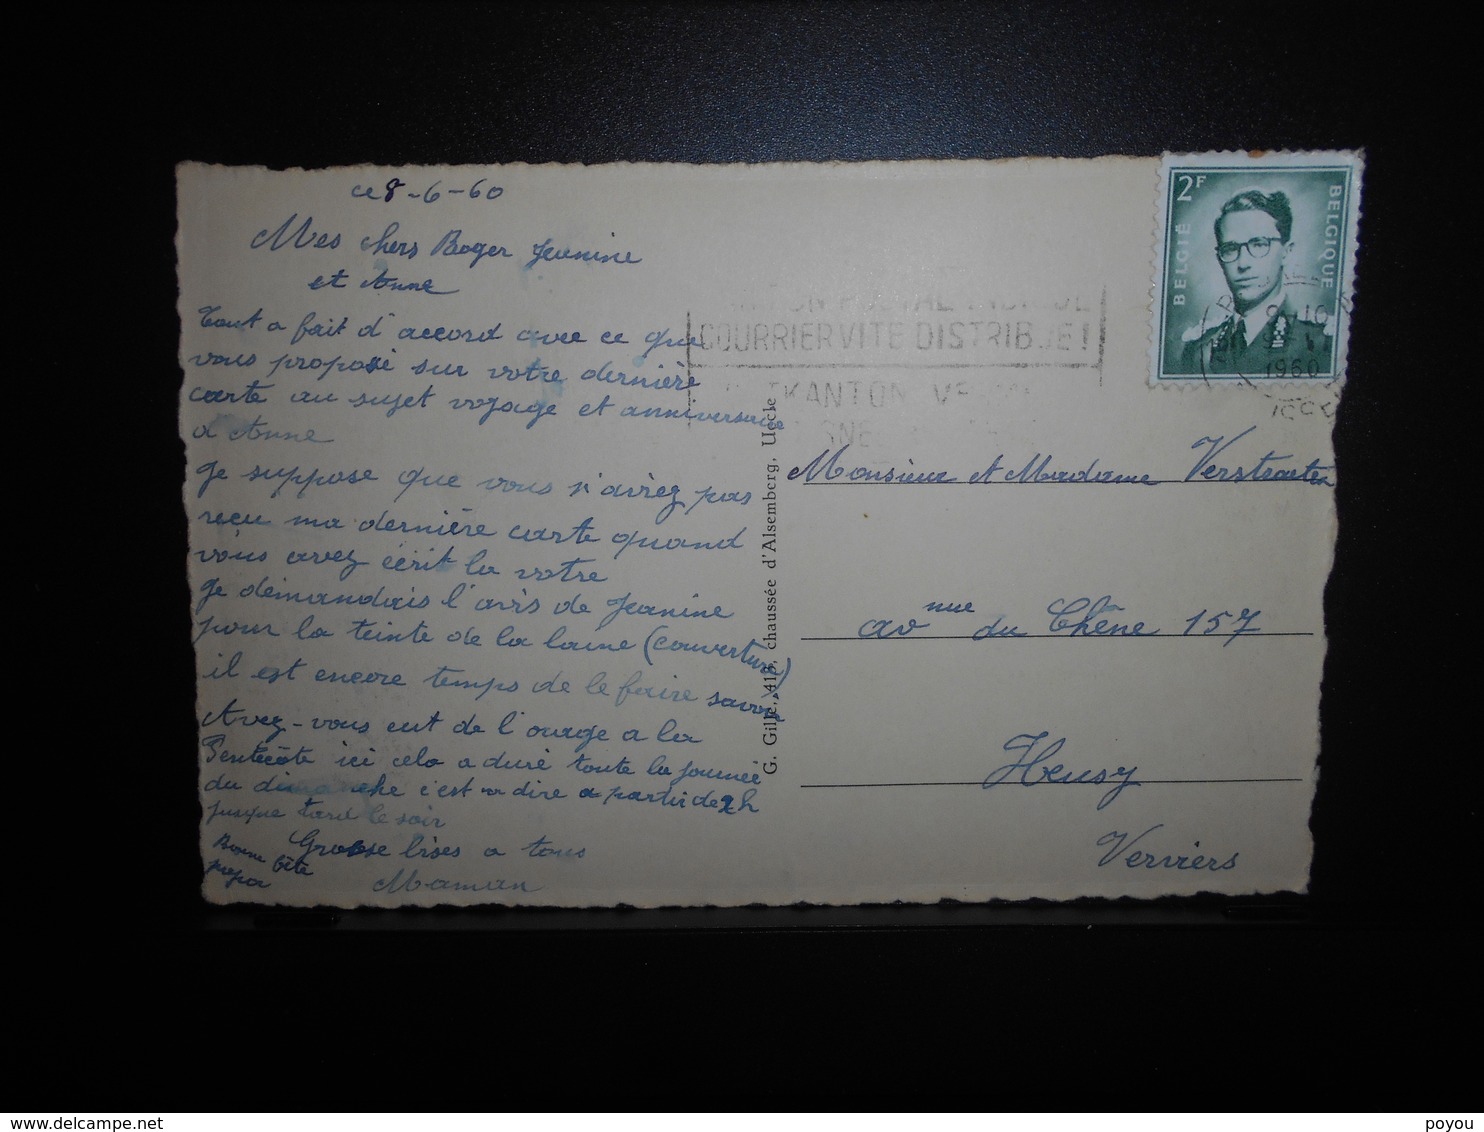 ce 8-6-60
Mes chers Roger Jeanine
et Anne
Tout a fait d'accord avec ce que
vous proposé sur votre dernière
carte au sujet voyage et anniversaire
d'Anne
Je suppose que vous n'aviez pas
reçu ma dernière carte quand
vous avez écrit la votre
Je demandais l'avis de Jeanine
pour la teinte de la laine (couverture)
il est encore temps de le faire savoir
Avez-vous eut de l'orage a la
Pentecôte ici cela a duré toute la journeé
du dimanche c'est a dire a partir de 2h
jusque tard le soir
Grosse bises a tous
Maman
Bonne fête
papa
G. Gille, 418, chaussée d'Alsemberg, Uccle
COURRIER VITE DISTRIBUE!
2F
BELGIË
BELGIQUE
1960
Monsieur et Madame Verstraeten
avnue du Chêne 157
Heusy
Verviers
delcampe.net
poyou